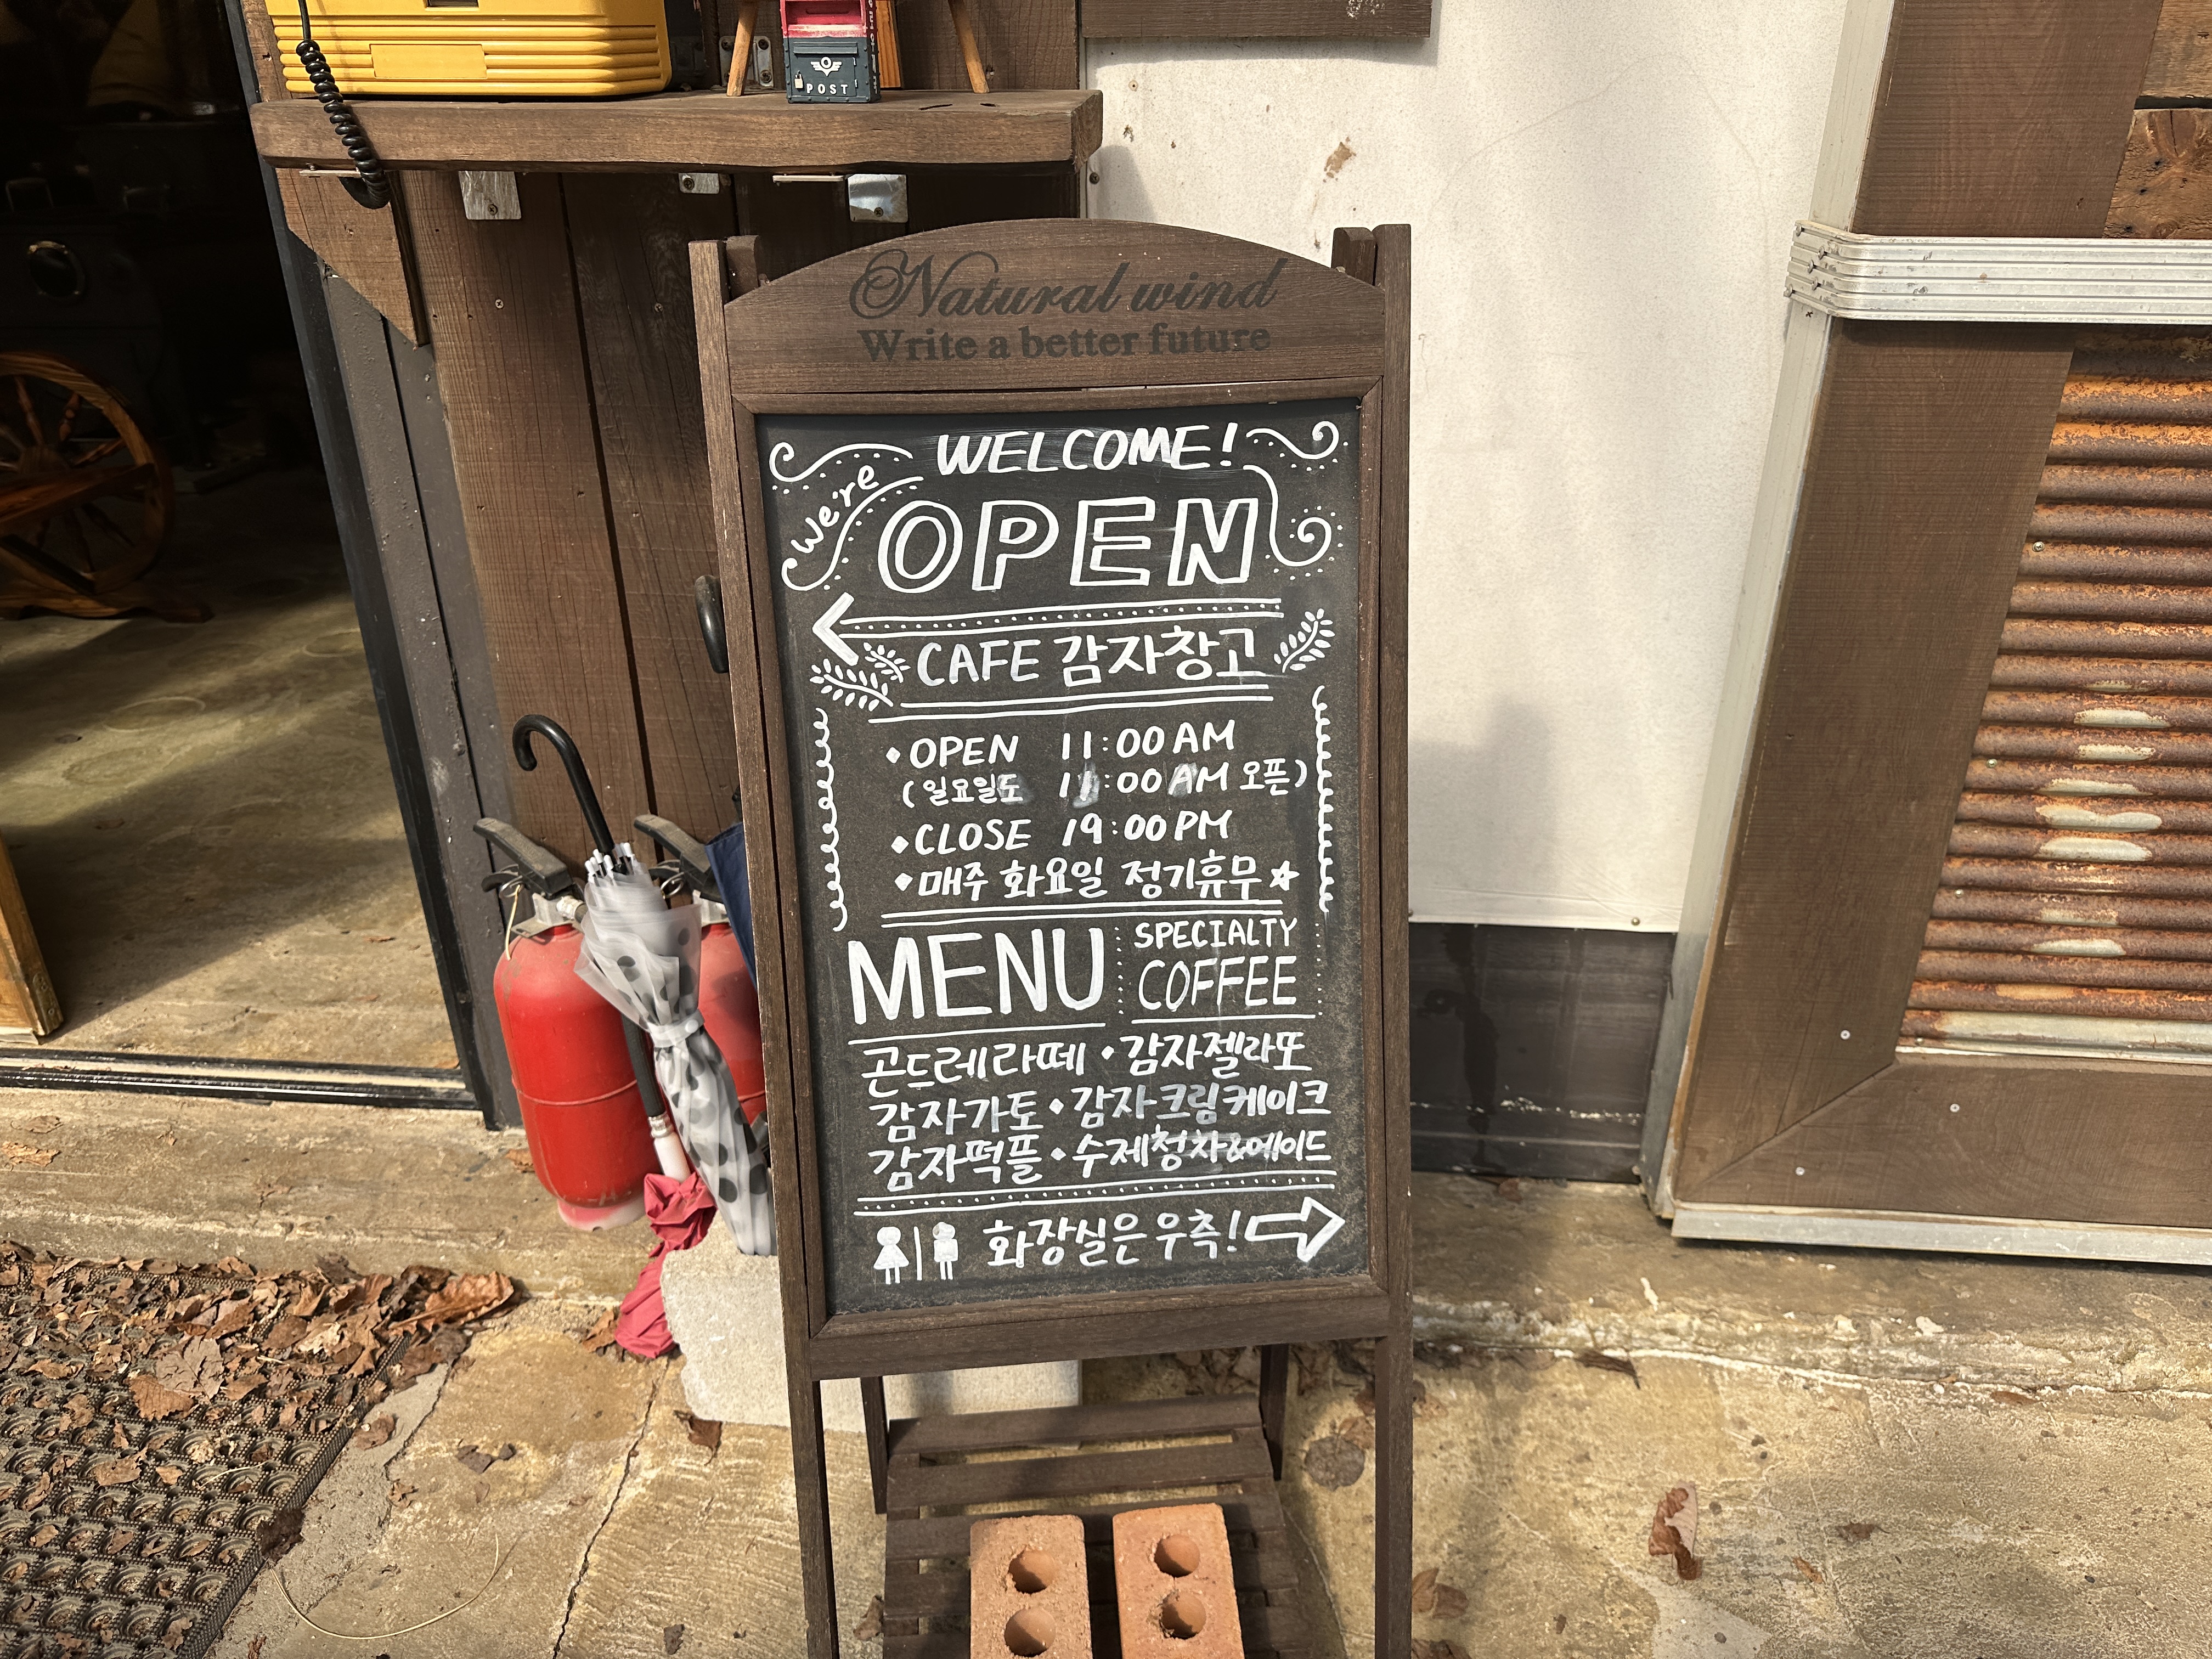 POST
Natural wind
Write a better future
WELCOME!
We're
OPEN
CAFE 감자창고
•OPEN 11:00 AM
(일요일도 11:00 AM 오픈)
•CLOSE 19:00 PM
•매주 화요일 정기휴무☆
MENU SPECIALTY COFFEE
곤드레라떼•감자젤라또
감자가토•감자크림케이크
감자떡플•수제청차&에이드
화장실은 우측!